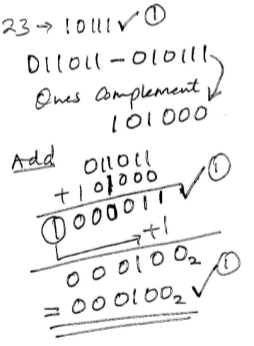 23 → 10111 ✓ ①
011011 - 010111
Ones complement
101000
Add 011011
+101000
①000011 ✓ ①
+1
000100₂
= 000100₂ ✓ ①